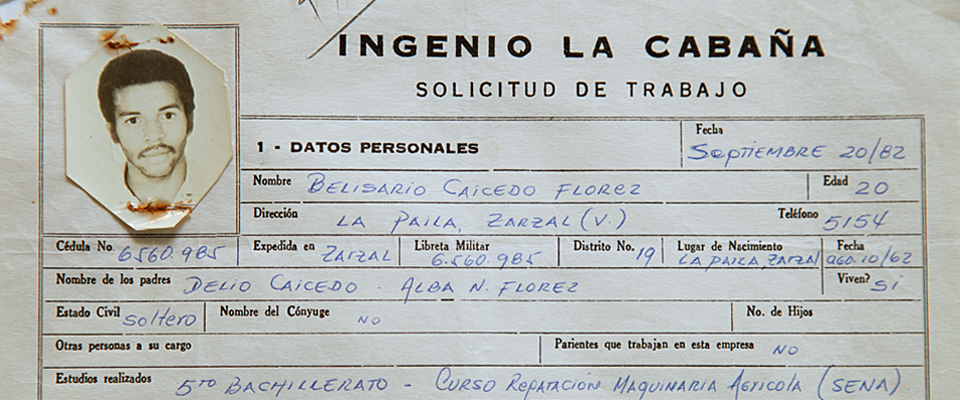 INGENIO LA CABAÑA
SOLICITUD DE TRABAJO
1 - DATOS PERSONALES Fecha SEPTIEMBRE 20/82
Nombre BELISARIO CAICEDO FLOREZ Edad 20
Dirección LA PAILA, ZARZAL (V.) Teléfono 5154
Cédula No. 6.560.985 Expedida en ZARZAL Libreta Militar 6.560.985 Distrito No. 19 Lugar de Nacimiento LA PAILA, ZARZAL Fecha AGO.10/62
Nombre de los padres DELIO CAICEDO - ALBA N. FLOREZ Viven? Si
Estado Civil Soltero Nombre del Cónyuge NO No. de Hijos
Otras personas a su cargo Parientes que trabajan en esta empresa NO
Estudios realizados 5TO BACHILLERATO - CURSO REPARACIÓN MAQUINARIA AGRICOLA (SENA)